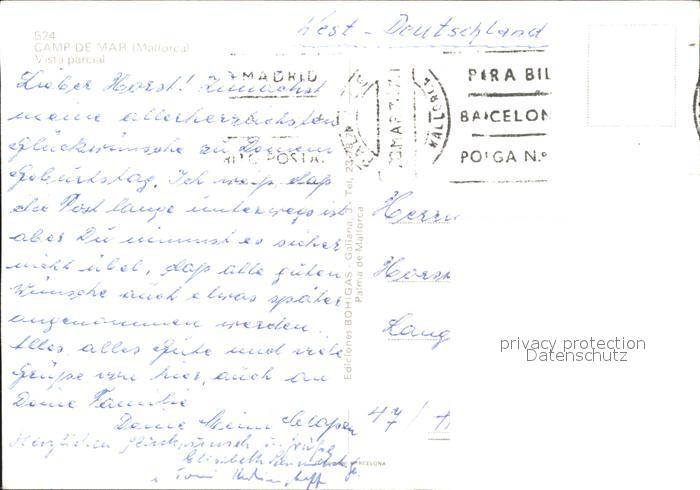 West - Deutschland
524
CAMP DE MAR (Mallorca)
Vista parcial
Lieber Horst! Zunächst
meine allerherzlichsten
Glückwünsche zu Deinem
Geburtstag. Ich weiß, daß
die Post lange unterwegs ist
aber Du nimmst es sicher
nicht übel, daß alle guten
Wünsche auch etwas später
angenommen werden.
Alles, alles Gute und viele
Grüße von hier, auch an
Deine Familie
Deine
Herzlichen Glückwunsch u. Grüße
Elisabeth
MADRID
POSTAL
MALLORCA
PARA BIL
BARCELON
POIGA N.º
Ediciones BOHIGAS - Galiana, 3 - Tel. 23
Palma de Mallorca
BARCELONA
Herrn
Horst
Lang
47 /
privacy protection
Datenschutz